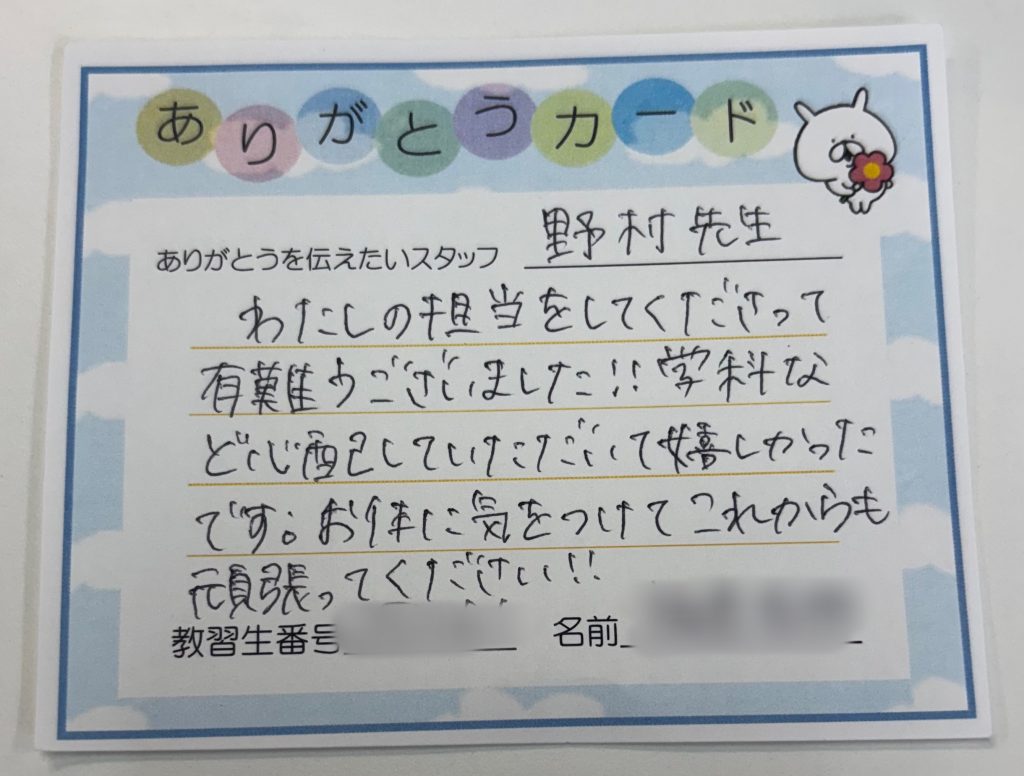 ありがとうカード
ありがとうを伝えたいスタッフ 野村先生
わたしの担当をしてくださって
有難うございました!!学科な
ど心配していただいて嬉しかった
です。お体に気をつけてこれからも
頑張ってください!!
教習生番号 名前